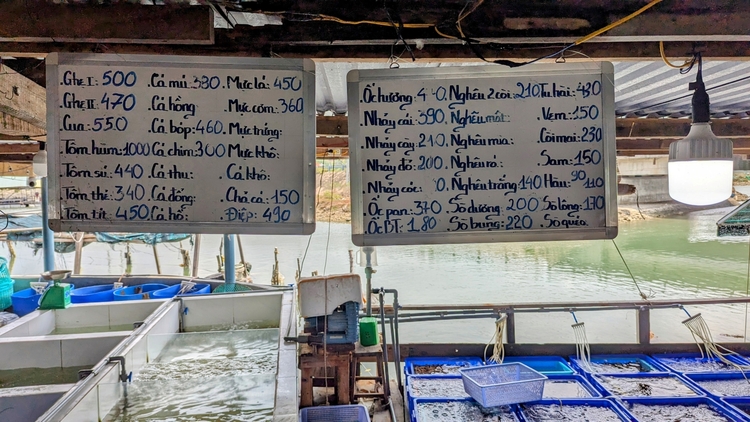 Ghẹ I: 500 Cá mú: 380 Mực lá: 450
Ghẹ II: 470 Cá hồng Mực cơm: 360
Cua: 550 Cá bóp: 460 Mực trứng:
Tôm hùm: 1000 Cá chim: 300 Mực khô:
Tôm sú: 440 Cá thu: Cá khô:
Tôm thẻ: 340 Cá đồng: Chả cá: 150
Tôm tít: 450 Cá hố: Điệp: 490
Ốc hương: Nghêu 2 cồi: 210 Tu hài: 480
Nhảy cái: 390 Nghêu mát: Vẹm: 150
Nhảy cày: 210 Nghêu mía: Cồi mai: 230
Nhảy đỏ: 200 Nghêu ró: Sam: 150
Nhảy cóc: Nghêu trắng: 140 Hàu: 90 110
Ốc pan: 370 Sò dương: 200 Sò lông: 170
Ốc BT: 180 Sò bung: 220 Sò quéo: